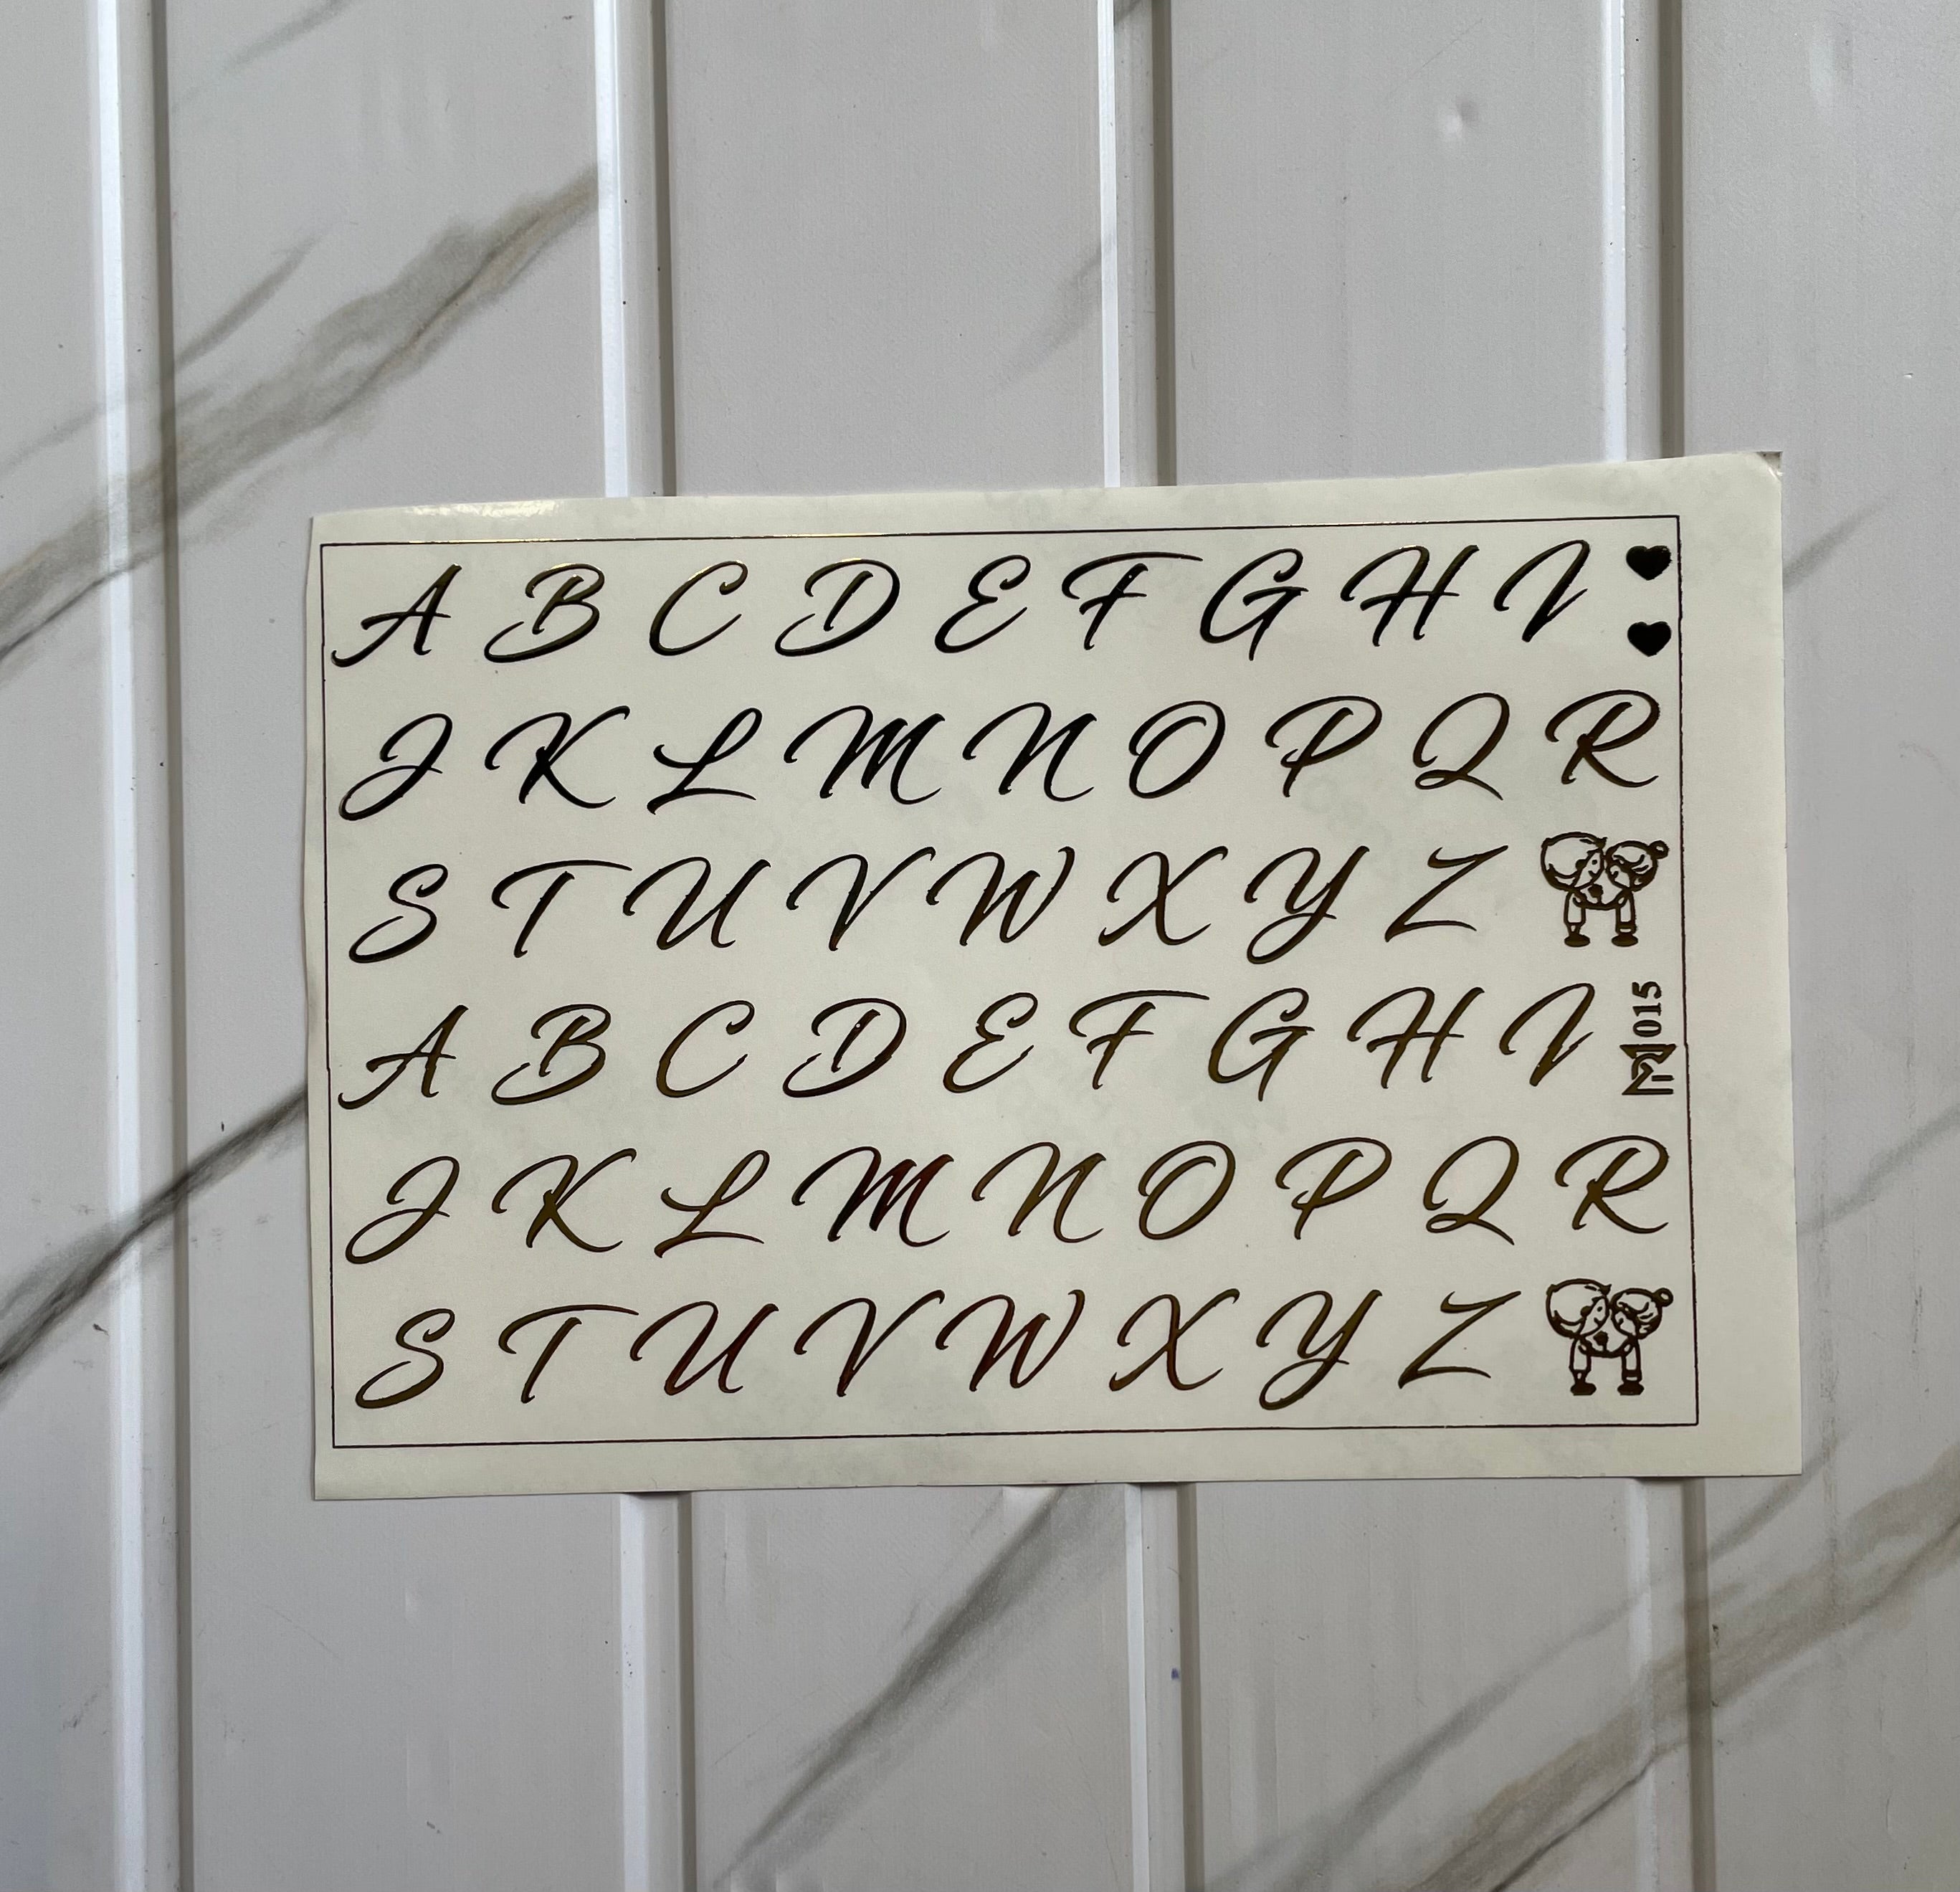 A B C D E F G H I
J K L M N O P Q R
S T U V W X Y Z
A B C D E F G H I
015
J K L M N O P Q R
S T U V W X Y Z